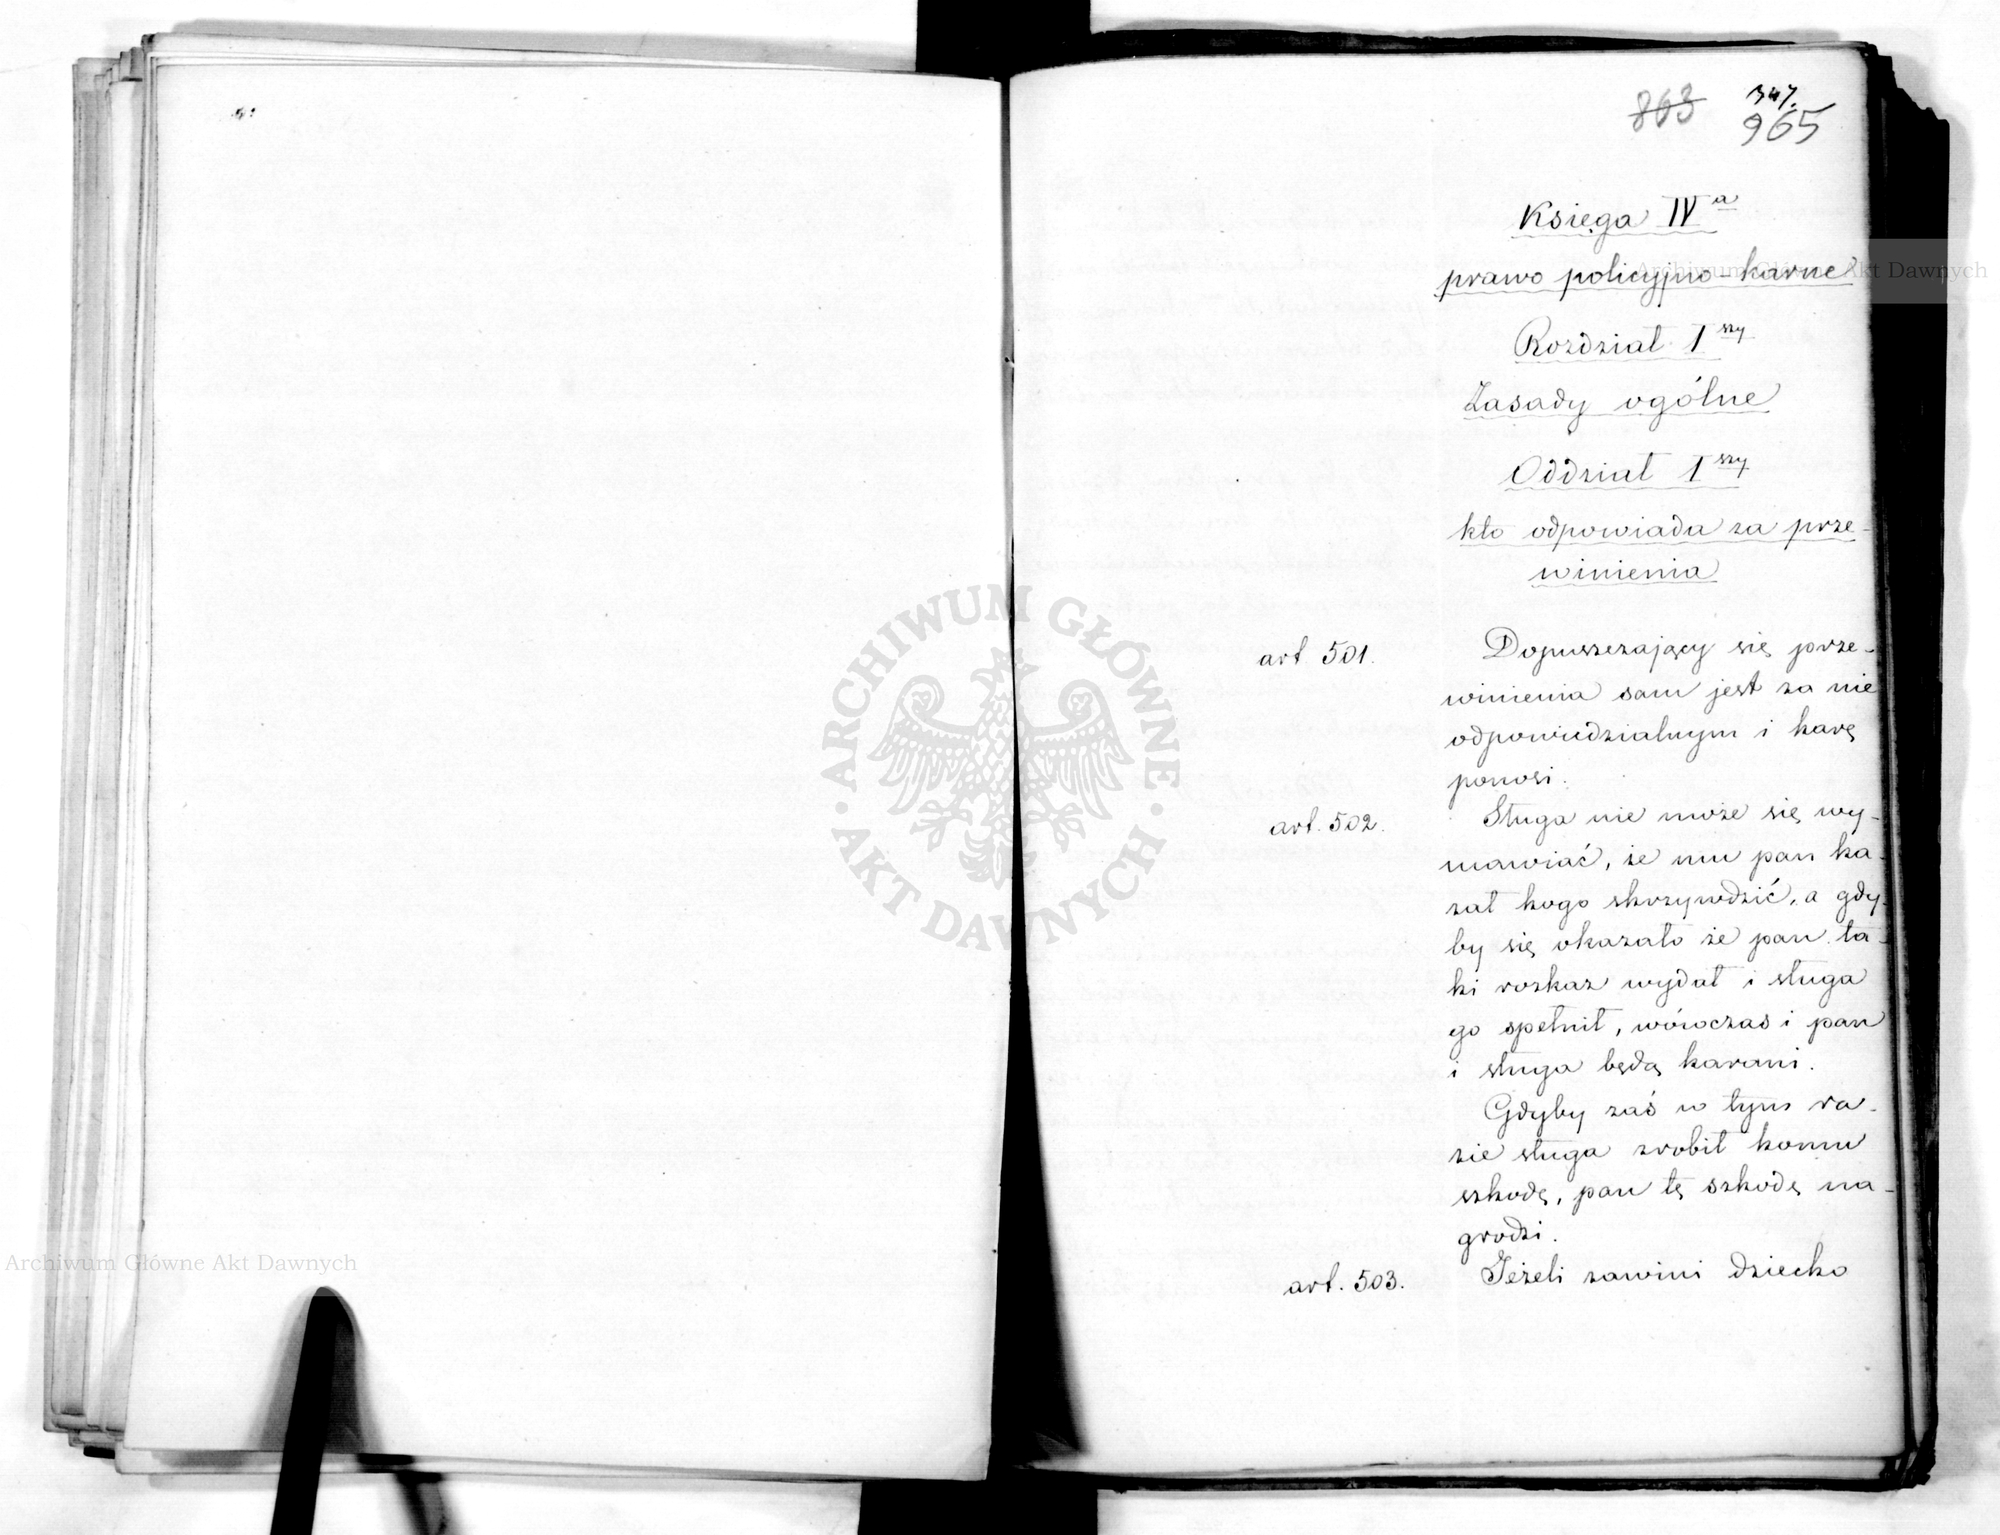 863 347.
965
Księga IVa
prawo policyjno-karne
Rozdział Iszy
Zasady ogólne
Oddział Iszy
kto odpowiada za prze-
winienia
art. 501. Dopuszczający się prze-
winienia sam jest za nie
odpowiedzialnym i karę
ponosi.
art. 502. Sługa nie może się wy-
mawiać, że mu pan ka-
zał kogo skrzywdzić, a gdy-
by się okazało że pan ta-
ki rozkaz wydał i sługa
go spełnił, wówczas i pan
i sługa będą karani.
Gdyby zaś w tym ra-
zie sługa zrobił komu
szkodę, pan tę szkodę na-
grodzi.
art. 503. Jeżeli zawini dziecko
ARCHIWUM GŁÓWNE
AKT DAWNYCH
Archiwum Główne Akt Dawnych
Archiwum Główne Akt Dawnych